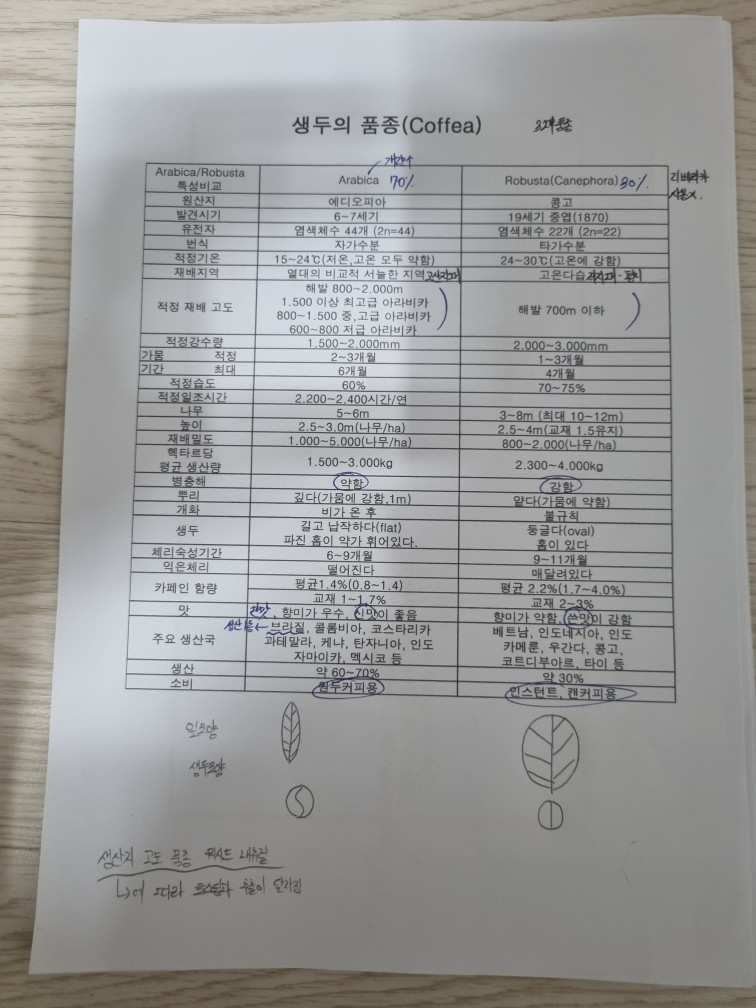 생두의 품종(Coffea) 3대품종
개량수
Arabica/Robusta 특성비교 Arabica 70% Robusta(Canephora) 30% 리베리카
사용x.
원산지 에디오피아 콩고
발견시기 6~7세기 19세기 중엽(1870)
유전자 염색체수 44개 (2n=44) 염색체수 22개 (2n=22)
번식 자가수분 타가수분
적정기온 15~24℃(저온,고온 모두 약함) 24~30℃(고온에 강함)
재배지역 열대의 비교적 서늘한 지역 고산지대 고온다습
적정 재배 고도 해발 800~2.000m
1.500 이상 최고급 아라비카
800~1.500 중,고급 아라비카
600~800 저급 아라비카
해발 700m 이하
적정강수량 1.500~2.000mm 2.000~3.000mm
가뭄 적정 2~3개월 1~3개월
기간 최대 6개월 4개월
적정습도 60% 70~75%
적정일조시간 2.200~2,400시간/연
나무 5~6m 3~8m (최대 10~12m)
높이 2.5~3.0m(나무/ha) 2.5~4m(교재 1.5유지)
재배밀도 1.000~5.000(나무/ha) 800~2.000(나무/ha)
헥타르당
평균 생산량 1.500~3.000kg 2.300~4.000kg
병충해 약함 강함
뿌리 깊다(가뭄에 강함,1m) 얕다(가뭄에 약함)
개화 비가 온 후 불규칙
생두 길고 납작하다(flat) 둥글다(oval)
파진 홈이 약가 휘어있다. 홈이 있다
체리숙성기간 6~9개월 9~11개월
익은체리 떨어진다 매달려있다
카페인 함량 평균1.4%(0.8~1.4) 평균 2.2%(1.7~4.0%)
교재 1~1.7% 교재 2~3%
맛 단맛, 향미가 우수, 신맛이 좋음 향미가 약함, 쓴맛이 강함
주요 생산국 브라질, 콜롬비아, 코스타리카 베트남, 인도네시아, 인도
과테말라, 케냐, 탄자니아, 인도 카메룬, 우간다, 콩고,
자마이카, 멕시코 등 코트디부아르, 타이 등
생산 약 60~70% 약 30%
소비 원두커피용 인스턴트, 캔커피용
잎모양
생두모양
생산지 고도 품종 워시드 내츄럴
↳에 따라 로스팅과 추출이 달라짐